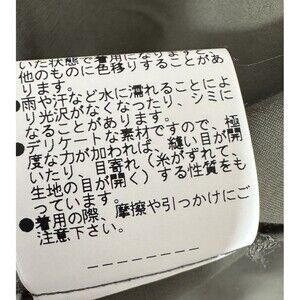 いた状態で着用になりますと、
他のものに色移りすることがあ
ります。
●雨や汗など水に濡れることによ
り光沢がなくなったり、シミに
なることがあります。
●デリケートな素材ですので、極
度な力が加われば、縫い目が開
いたり、目寄れ(糸がずれて
生地の目が開く)する性質をも
っています。
●着用の際、摩擦や引っかけにご
注意下さい。